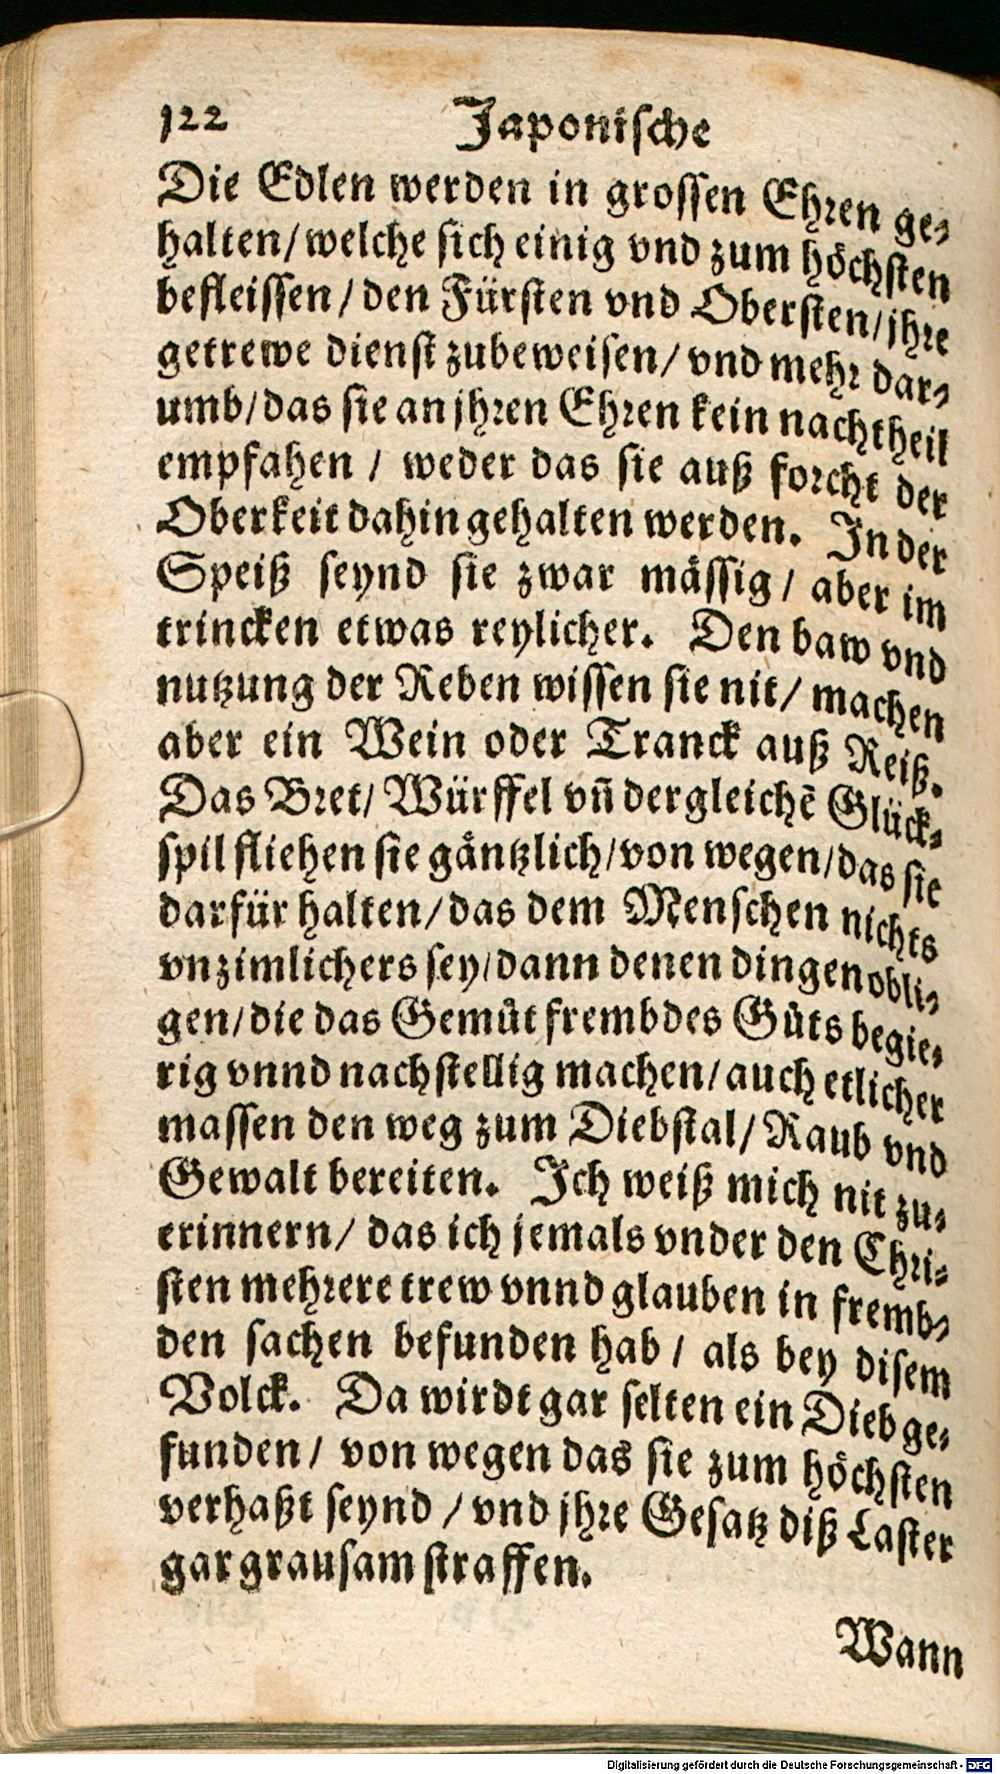 122 Japonische
Die Edlen werden in grossen Ehren ge⸗
halten/ welche sich einig vnd zum höchsten
befleissen/ den Fürsten vnd Obersten/ jhre
getrewe dienst zubeweisen/ vnd mehr dar⸗
umb/ das sie an jhren Ehren kein nachtheil
empfahen / weder das sie auß forcht der
Oberkeit dahin gehalten werden. In der
Speiß seynd sie zwar mässig/ aber im
trincken etwas reylicher. Den baw vnd
nutzung der Reben wissen sie nit/ machen
aber ein Wein oder Tranck auß Reiß.
Das Bret/ Würffel vñ dergleichẽ Glück⸗
spil fliehen sie gäntzlich/ von wegen/ das sie
darfür halten/ das dem Menschen nichts
vnzimlichers sey/ dann denen dingen obli⸗
gen/ die das Gemůt frembdes Gůts begie⸗
rig vnnd nachstellig machen/ auch etlicher
massen den weg zum Diebstal/ Raub vnd
Gewalt bereiten. Ich weiß mich nit zu⸗
erinnern/ das ich jemals vnder den Chri⸗
sten mehrere trew vnnd glauben in fremb⸗
den sachen befunden hab / als bey disem
Volck. Da wirdt gar selten ein Dieb ge⸗
funden/ von wegen das sie zum höchsten
verhaßt seynd / vnd jhre Gesatz diß Laster
gar grausam straffen.
Wann
Digitalisierung gefördert durch die Deutsche Forschungsgemeinschaft - DFG